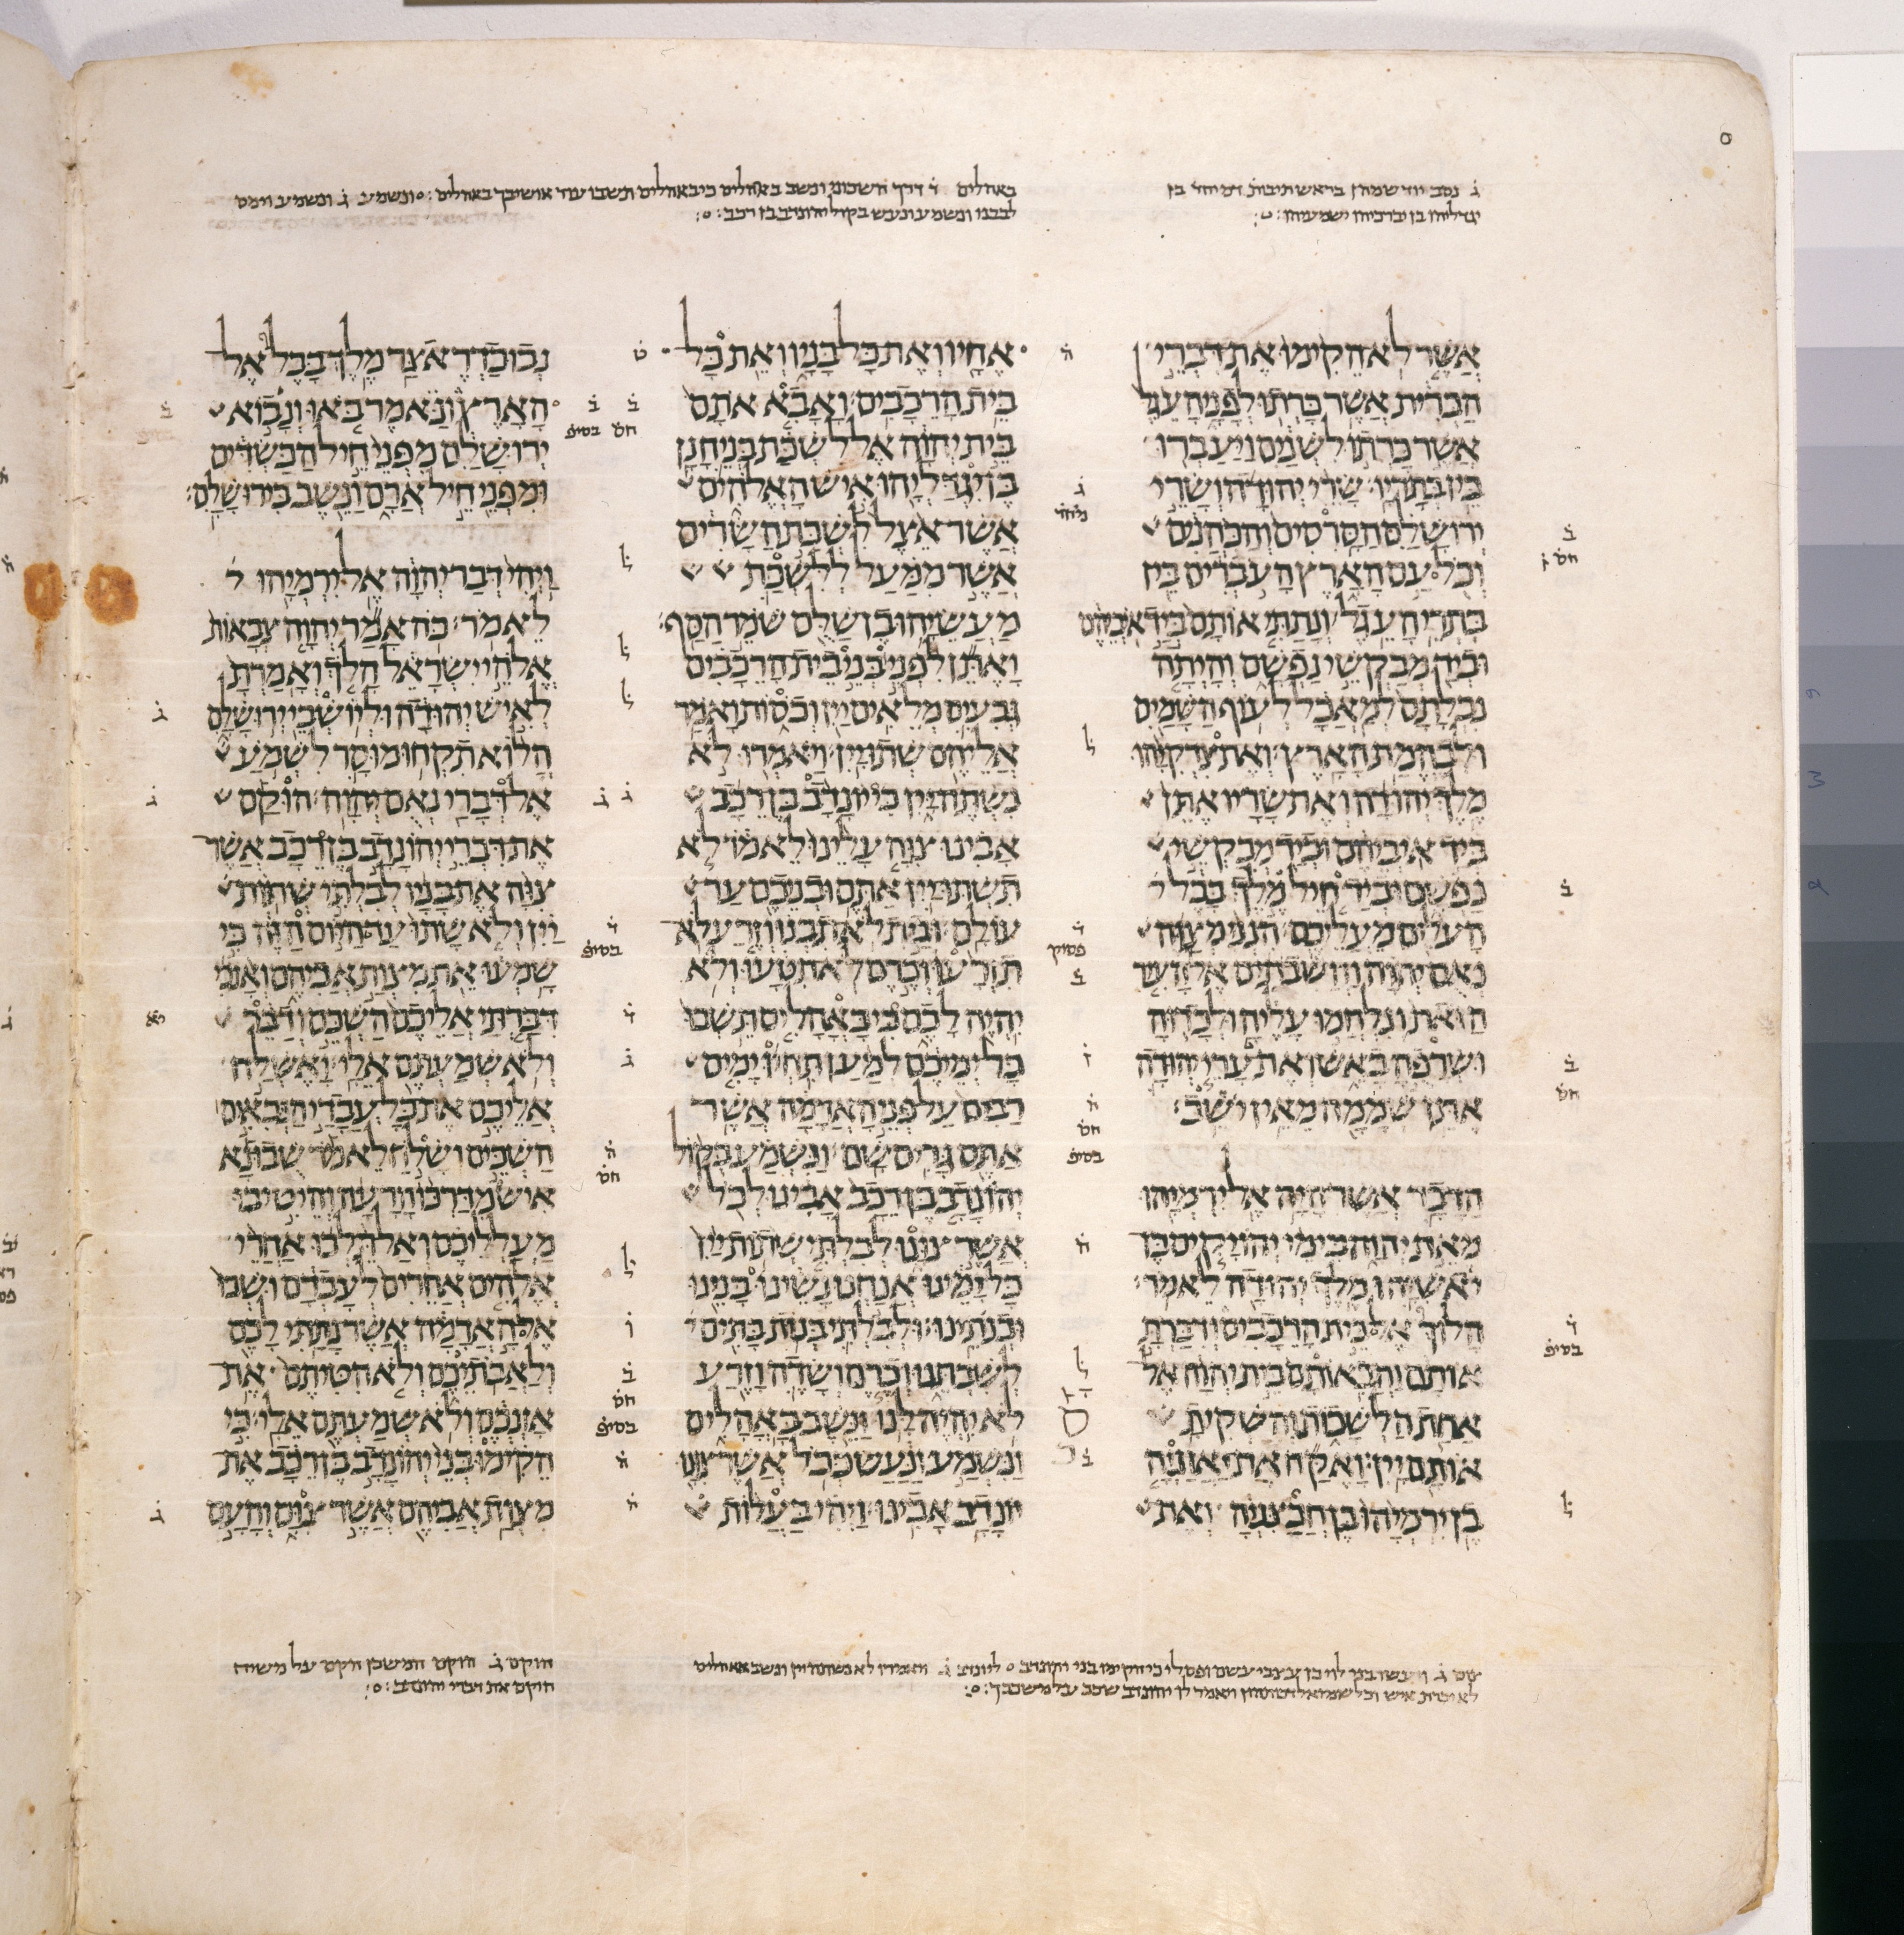 ג נסב יוד שמהן בראש תיבות דמיחד בן
יגדליהו בן יברכיהו ישמעיהו
באהלים ד דרך השכוני ונשב באהלים כי באהלים תשבו עוד אושיבך באהלים ונשמע ג ונשמע וימס
לבבנו ונשמע ונעש בקול יהונדב בן רכב
אשר לא הקימו את דברי
הברית אשר כרתו לפני העגל
אשר כרתו לשנים ויעברו
בין בתריו שרי יהודה ושרי
ירושלם הסרסים והכהנים
וכל עם הארץ העברים בין
בתרי העגל ונתתי אותם ביד איביהם
וביד מבקשי נפשם והיתה
נבלתם למאכל לעוף השמים
ולבהמת הארץ ואת צדקיהו
מלך יהודה ואת שריו אתן
ביד איביהם וביד מבקשי
נפשם וביד חיל מלך בבל
העלים מעליכם הנני מצוה
נאם יהוה והשבתים אל העיר
הזאת ונלחמו עליה ולכדוה
ושרפה באש ואת ערי יהודה
אתן שממה מאין ישב
הדבר אשר היה אל ירמיהו
מאת יהוה בימי יהויקים בן
יאשיהו מלך יהודה לאמר
הלוך אל בית הרכבים ודברת
אותם והבאותם בית יהוה אל
אחת הלשכות והשקית
אותם יין ואקח את יאזניה
בן ירמיהו בן חבצניה ואת
אחיו ואת כל בניו ואת כל
בית הרכבים ואבא אתם
בית יהוה אל לשכת בני חנן
בן יגדליהו איש האלהים
אשר אצל לשכת השרים
אשר ממעל ללשכת
מעשיהו בן שלם שמר הסף
ואתן לפני בני בית הרכבים
גבעים מלאים יין וכסות ואמר
אליהם שתו יין ויאמרו לא
נשתה יין כי יונדב בן רכב
אבינו צוה עלינו לאמר לא
תשתו יין אתם ובניכם עד
עולם ובית לא תבנו וזרע לא
תזרעו וכרם לא תטעו ולא
יהיה לכם כי באהלים תשבו
כל ימיכם למען תחיו ימים
רבים על פני האדמה אשר
אתם גרים שם ונשמע בקול
יהונדב בן רכב אבינו לכל
אשר צונו לבלתי שתות יין
כל ימינו אנחנו נשינו בנינו
ובנתינו ולבלתי בנות בתים
לשבתנו וכרם ושדה וזרע
לא יהיה לנו ונשב באהלים
ונשמע ונעש ככל אשר צונו
יונדב אבינו ויהי בעלות
נבוכדראצר מלך בבל אל
הארץ ונאמר באו ונבוא
ירושלם מפני חיל הכשדים
ומפני חיל ארם ונשב בירושלם
ויהי דבר יהוה אל ירמיהו
לאמר כה אמר יהוה צבאות
אלהי ישראל הלך ואמרת
לאיש יהודה וליושבי ירושלם
הלוא תקחו מוסר לשמע
אל דברי נאם יהוה הוקם
את דברי יהונדב בן רכב אשר
צוה את בניו לבלתי שתות
יין ולא שתו עד היום הזה כי
שמעו את מצות אביהם ואנכי
דברתי אליכם השכם ודבר
ולא שמעתם אלי ואשלח
אליכם את כל עבדי הנבאים
השכים ושלח לאמר שבו נא
איש מדרכו הרעה והיטיבו
מעלליכם ואל תלכו אחרי
אלהים אחרים לעבדם ושבו
אל האדמה אשר נתתי לכם
ולאבתיכם ולא הטיתם את
אזנכם ולא שמעתם אלי כי
הקימו בני יהונדב בן רכב את
מצות אביהם אשר צום והעם
לא יכרת איש וכל שמואל דכותהון ויאמר לו יהונדב שכב על משכבך
הוקם ג הוקם המשכן הקם על משיח
הוקם את דברי יהונדב